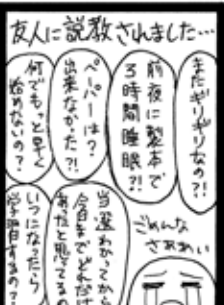 友人に説教されました…
またギリギリなの?!
前夜に製本で
3時間睡眠?!
ペーパーは?
出来なかった?!
何でもっと早く
始めないの?
当選わかってから
今日まで
あったと思ってるの
いつになったら
学習するの?
ごめんな
さぁぁい